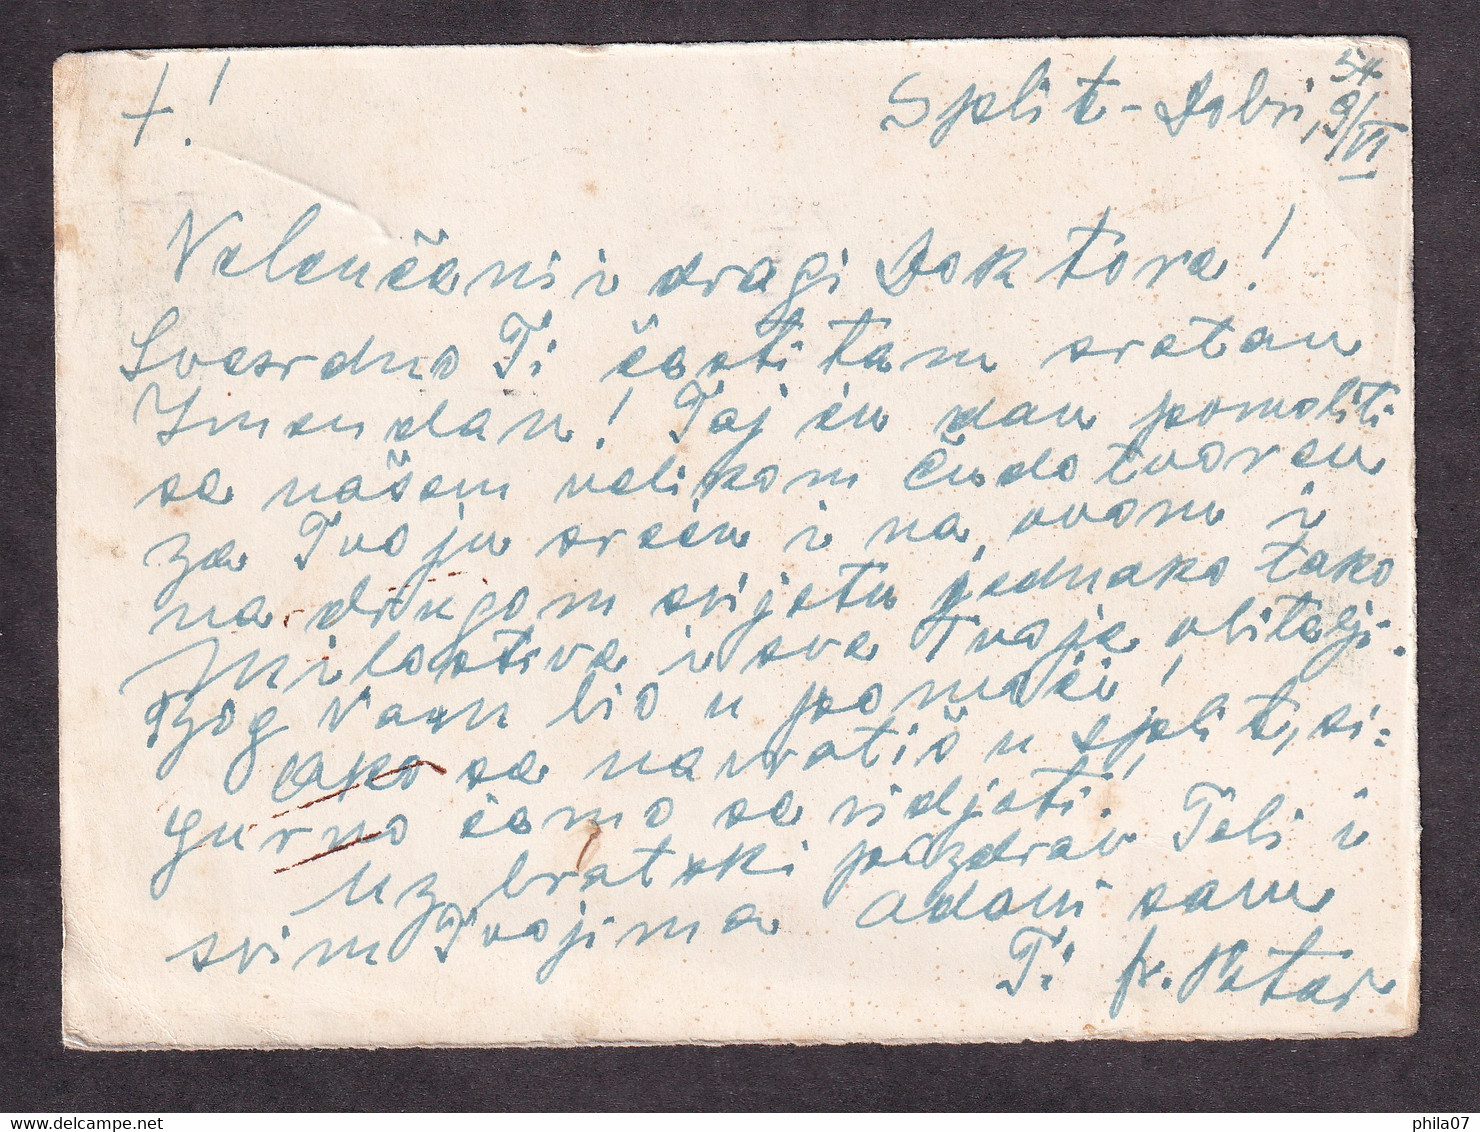 +!
Split-Dobri, 9/VI 54
Veleučeni i dragi Doktore!
Svesrdno Ti čestitam sretan
Imendan! Taj ću dan pomoliti
se našem velikom čudotvorcu
za Tvoju sreću i na ovom i
na drugom svijetu jednako tako
Milostive i sve Tvoje obitelji.
Bog Vam bio u pomoći!
Ako se navratiš u Split, si=
gurno ćemo se vidjeti!
Uz bratski pozdrav Tebi i
svim Tvojima odani sam
Ti fr. Petar
phila07